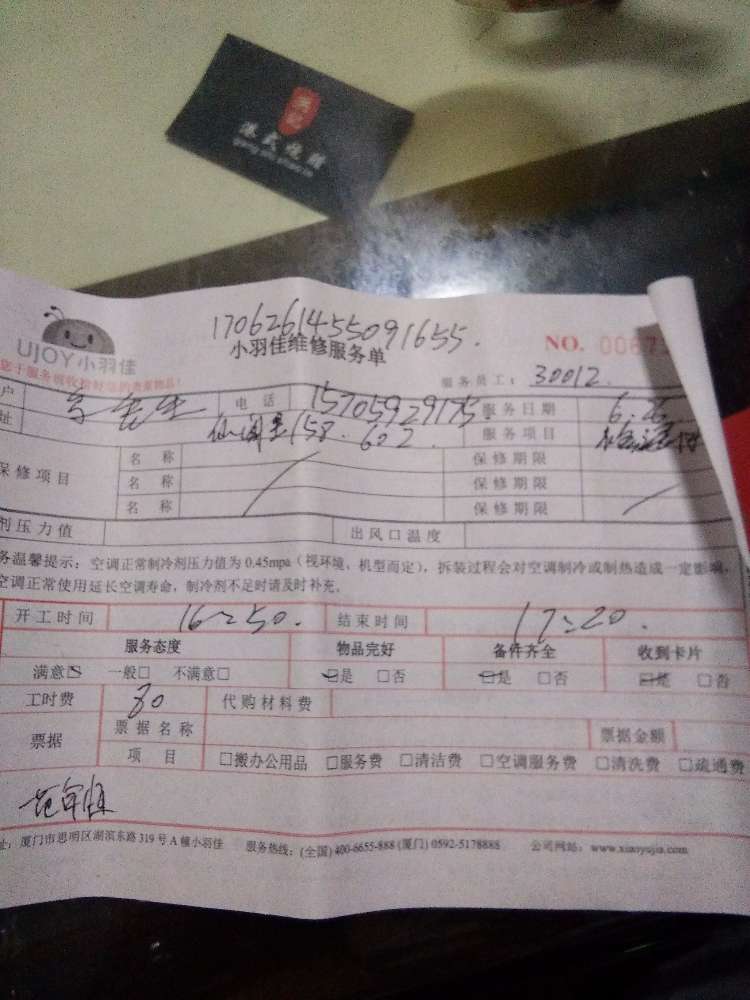 港式烧腊
1706261455091655.
UJOY小羽佳
小羽佳维修服务单
NO.
服务员工: 30012.
户
电话 15705929175
服务日期 6.26
址
仙阁里158.602
服务项目
保修项目
名称
保修期限
名称
保修期限
名称
保修期限
剂压力值
出风口温度
务温馨提示: 空调正常制冷剂压力值为0.45mpa(视环境、机型而定), 拆装过程会对空调制冷或制热造成一定影响,
空调正常使用延长空调寿命, 制冷剂不足时请及时补充。
开工时间 16:50. 结束时间 17:20.
服务态度 物品完好 备件齐全 收到卡片
满意☑ 一般□ 不满意□ ☑是 □否 ☑是 □否 ☑是 □否
工时费 80 代购材料费
票据 票据名称 票据金额
项目 □搬办公用品 □服务费 □清洁费 □空调服务费 □清洗费 □疏通费
址: 厦门市思明区湖滨东路319号A幢小羽佳 服务热线: (全国) 400-6655-888 (厦门) 0592-5178888 公司网站: www.xiaoyujia.com